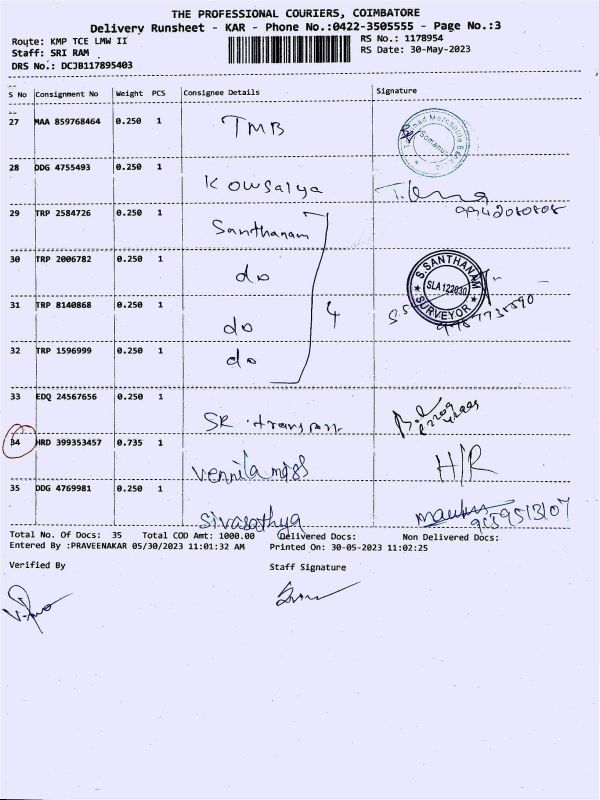 THE PROFESSIONAL COURIERS, COIMBATORE
Delivery Runsheet - KAR - Phone No.:0422-3505555 - Page No.:3
Route: KMP TCE LMW II RS No.: 1178954
Staff: SRI RAM RS Date: 30-May-2023
DRS No.: DCJB117895403
S No Consignment No Weight PCS Consignee Details Signature
27 MAA 859768464 0.250 1 TMB
28 DDG 4755493 0.250 1 Kowsalya
9942080808
29 TRP 2584726 0.250 1 Santhanam
30 TRP 2006782 0.250 1 do
S.SANTHANAM
SLA 122030
SURVEYOR
31 TRP 8140868 0.250 1 do 4
32 TRP 1596999 0.250 1 do
33 EDQ 24567656 0.250 1 SR transport
34 HRD 399353457 0.735 1 Vennila mggs H/R
35 DDG 4769981 0.250 1 Sivasathya
9159513107
Total No. Of Docs: 35 Total COD Amt: 1000.00 Delivered Docs: Non Delivered Docs:
Entered By :PRAVEENAKAR 05/30/2023 11:01:32 AM Printed On: 30-05-2023 11:02:25
Verified By Staff Signature